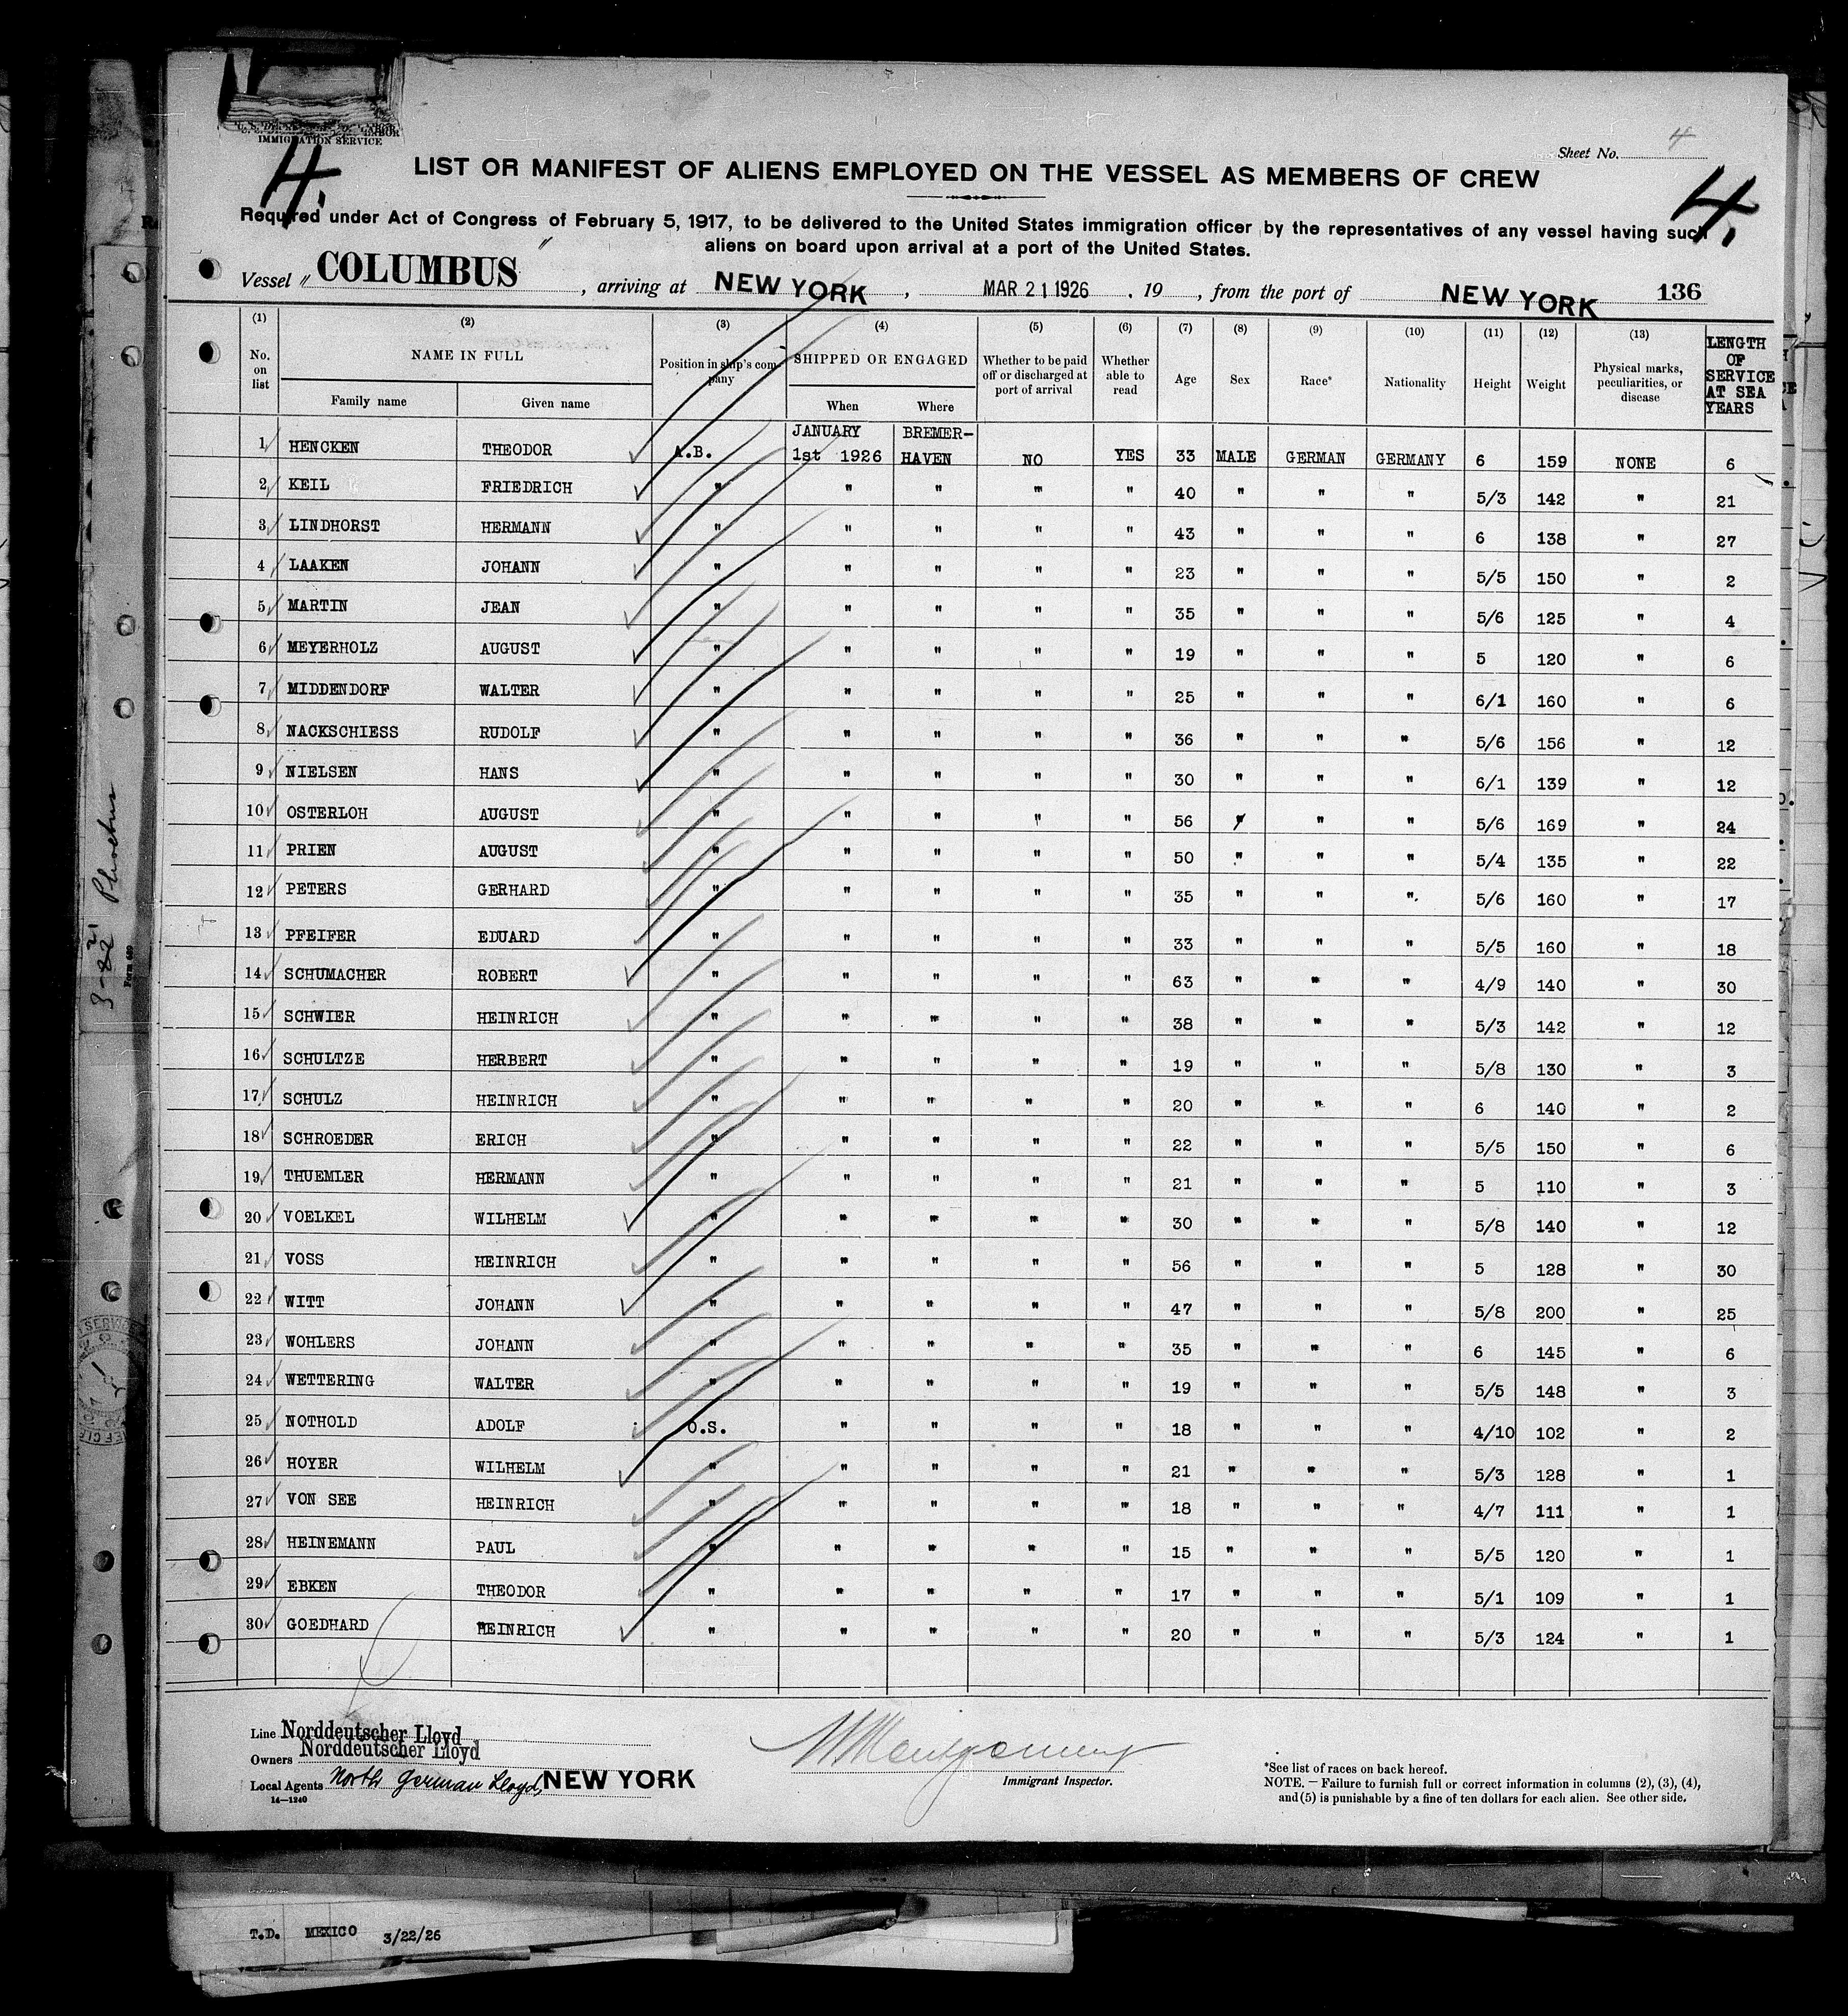 U. S. DEPARTMENT OF LABOR
IMMIGRATION SERVICE
4.
Sheet No. 4
4.
LIST OR MANIFEST OF ALIENS EMPLOYED ON THE VESSEL AS MEMBERS OF CREW
Required under Act of Congress of February 5, 1917, to be delivered to the United States immigration officer by the representatives of any vessel having such
aliens on board upon arrival at a port of the United States.
Vessel " COLUMBUS " , arriving at NEW YORK , MAR 21 1926 , 19 , from the port of NEW YORK 136
(1) (2) (3) (4) (5) (6) (7) (8) (9) (10) (11) (12) (13) LENGTH OF SERVICE AT SEA YEARS
No. on list NAME IN FULL Position in ship's company SHIPPED OR ENGAGED Whether to be paid off or discharged at port of arrival Whether able to read Age Sex Race* Nationality Height Weight Physical marks, peculiarities, or disease
Family name Given name When Where
1 HENCKEN THEODOR A.B. JANUARY 1st 1926 BREMER-HAVEN NO YES 33 MALE GERMAN GERMANY 6 159 NONE 6
2 KEIL FRIEDRICH " " " " " 40 " " " 5/3 142 " 21
3 LINDHORST HERMANN " " " " " 43 " " " 6 138 " 27
4 LAAKEN JOHANN " " " " " 23 " " " 5/5 150 " 2
5 MARTIN JEAN " " " " " 35 " " " 5/6 125 " 4
6 MEYERHOLZ AUGUST " " " " " 19 " " " 5 120 " 6
7 MIDDENDORF WALTER " " " " " 25 " " " 6/1 160 " 6
8 NACKSCHIESS RUDOLF " " " " " 36 " " " 5/6 156 " 12
9 NIELSEN HANS " " " " " 30 " " " 6/1 139 " 12
10 OSTERLOH AUGUST " " " " " 56 " " " 5/6 169 " 24
11 PRIEN AUGUST " " " " " 50 " " " 5/4 135 " 22
12 PETERS GERHARD " " " " " 35 " " " 5/6 160 " 17
13 PFEIFER EDUARD " " " " " 33 " " " 5/5 160 " 18
14 SCHUMACHER ROBERT " " " " " 63 " " " 4/9 140 " 30
15 SCHWIER HEINRICH " " " " " 38 " " " 5/3 142 " 12
16 SCHULTZE HERBERT " " " " " 19 " " " 5/8 130 " 3
17 SCHULZ HEINRICH " " " " " 20 " " " 6 140 " 2
18 SCHROEDER ERICH " " " " " 22 " " " 5/5 150 " 6
19 THUEMLER HERMANN " " " " " 21 " " " 5 110 " 3
20 VOELKEL WILHELM " " " " " 30 " " " 5/8 140 " 12
21 VOSS HEINRICH " " " " " 56 " " " 5 128 " 30
22 WITT JOHANN " " " " " 47 " " " 5/8 200 " 25
23 WOHLERS JOHANN " " " " " 35 " " " 6 145 " 6
24 WETTERING WALTER " " " " " 19 " " " 5/5 148 " 3
25 NOTHOLD ADOLF O.S. " " " " 18 " " " 4/10 102 " 2
26 HOYER WILHELM " " " " " 21 " " " 5/3 128 " 1
27 VON SEE HEINRICH " " " " " 18 " " " 4/7 111 " 1
28 HEINEMANN PAUL " " " " " 15 " " " 5/5 120 " 1
29 EBKEN THEODOR " " " " " 17 " " " 5/1 109 " 1
30 GOEDHARD HEINRICH " " " " " 20 " " " 5/3 124 " 1
Line Norddeutscher Lloyd
Owners Norddeutscher Lloyd
Local Agents North German Lloyd, NEW YORK
14—1240
W Montgomery
Immigrant Inspector.
*See list of races on back hereof.
NOTE. — Failure to furnish full or correct information in columns (2), (3), (4),
and (5) is punishable by a fine of ten dollars for each alien. See other side.
Form 689
Phoebus
T.D. MEXICO 3/22/26